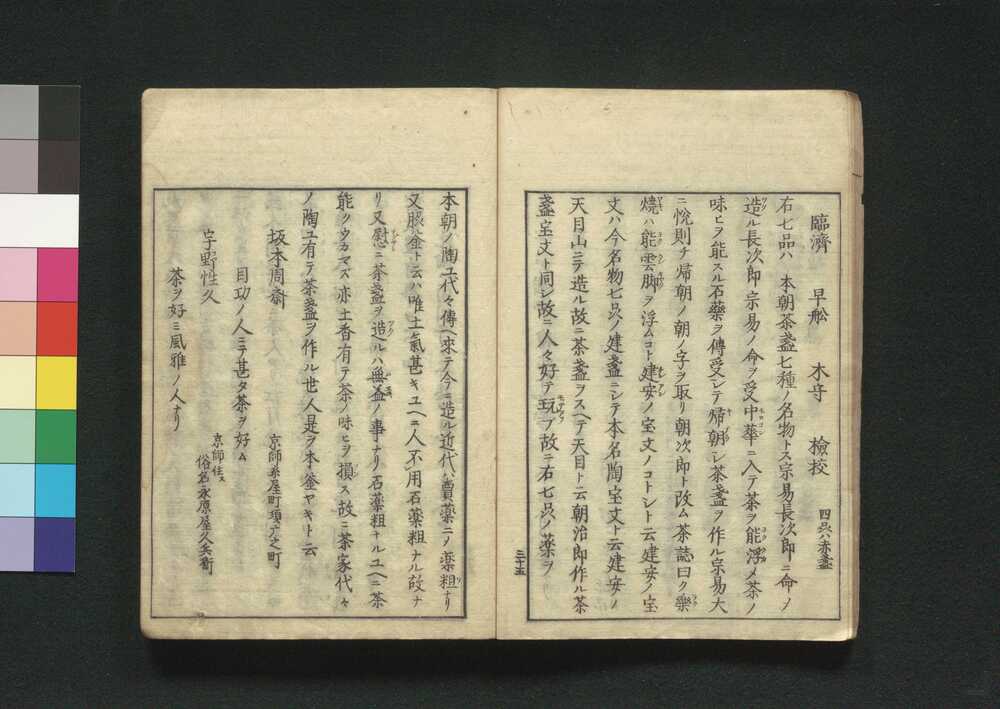 臨濟 早舩 木守 檢挍 四品ハ赤盞
右七品ハ 本朝茶盞七種ノ名物トス宗易長次郎ニ命ノ
造ル長次郎宗易ノ命ヲ受中華ニ入テ茶ヲ能浮メ茶ノ
味ヒヲ能スル石藥ヲ傳受シテ帰朝シ茶盞ヲ作ル宗易大
ニ悅則チ帰朝ノ朝ノ字ヲ取リ朝次郎ト改ム茶誌曰ク藥
燒ハ能雲脚ヲ浮ムコト建安ノ宝文ノコトシト云建安ノ宝
文ハ今名物七品ノ建盞ニシテ本名陶宝文ト云建安ノ
天目山ニテ造ル故ニ茶盞ヲスヘテ天目ト云朝治郎作ル茶
盞宝文ト同シ故ニ人々好テ玩フ故ニ右七品ノ藥ヲ
三十五
本朝ノ陶工代々傳ヘ來テ今ニ造ル近代ハ賣藥ニノ藥粗ナリ
又脇釜ト云ハ唯土氣甚キユヘニ人不用石藥粗ナル故ナ
リ又慰ニ茶盞ヲ造ルハ無益ノ事ナリ石藥粗ナルユヘニ茶
能クウカマズ亦土香有テ茶ノ味ヒヲ損ス故ニ茶家代々
ノ陶工有テ茶盞ヲ作ル世人是ヲ本釜ヤキト云
坂本周斎 京師糸屋町頂之町
目功ノ人ニテ甚タ茶ヲ好ム
宇野性久 京師住ス 俗名永原屋久兵衞
茶ヲ好ミ風雅ノ人ナリ